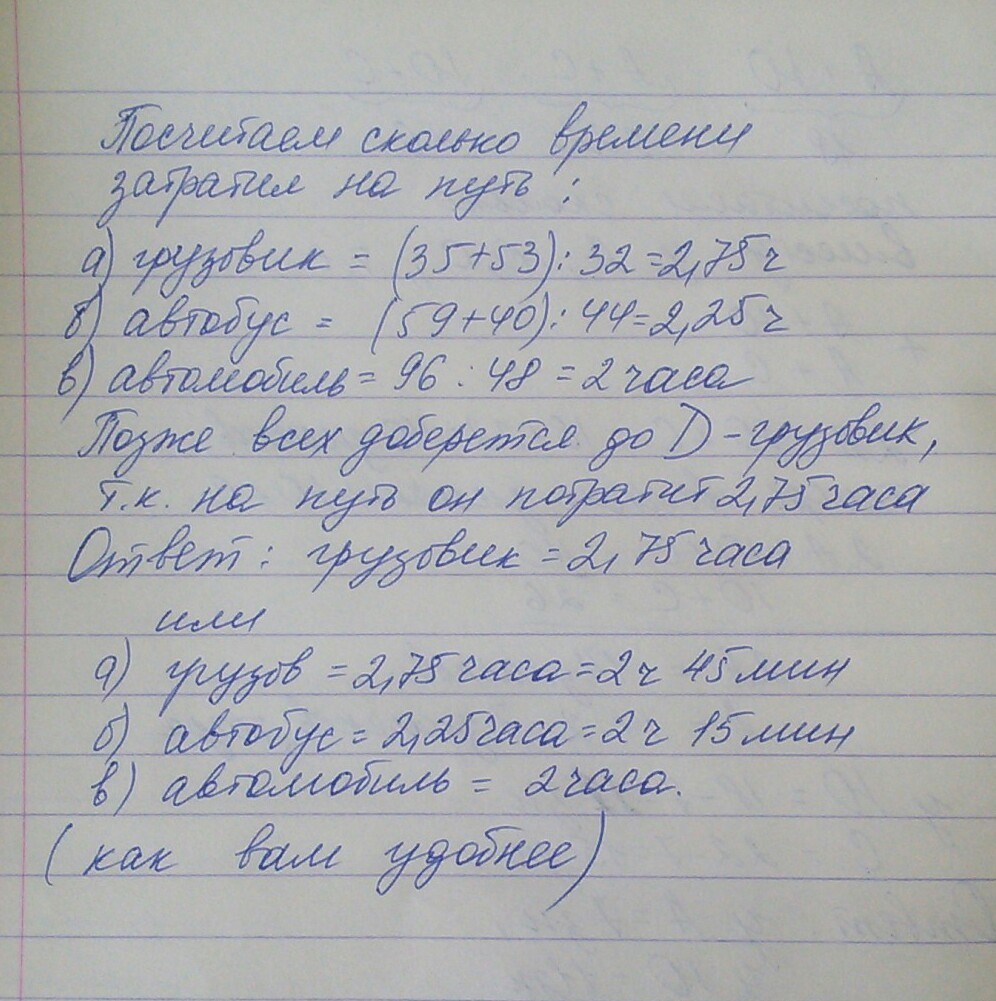 Посчитаем сколько времени
затратил на путь:
а) грузовик = (35+53):32=2,75ч
б) автобус = (59+40):44=2,25ч
в) автомобиль = 96:48 = 2 часа
Позже всех доберется до D-грузовик,
т.к. на путь он потратит 2,75 часа
Ответ: грузовик = 2,75 часа
или
а) грузов = 2,75 часа = 2ч 45 мин
б) автобус = 2,25 часа = 2ч 15 мин
в) автомобиль = 2 часа.
(как вам удобнее)